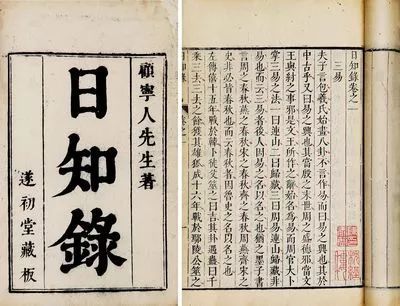 顧寧人先生著
日知錄
遂初堂藏板
日知錄卷之一
三易
夫子言包羲氏始畫八卦不言作易而曰易之興也其於
中古乎又曰易之興也其當殷之末世周之盛德邪當文
王與紂之事邪是文王所作之辭始名為易而周官大卜
掌三易之法一曰連山二曰歸藏三曰周易連山歸藏非
易也而云三易者後人因易之名以名之也猶之墨子書
言周之春秋燕之春秋宋之春秋齊之春秋周燕齊宋之
史非必皆春秋也而云春秋者因魯史之名以名之也
左傳僖十五年戰於韓卜徒父筮之曰吉其卦遇蠱曰千
乘三去三去之餘獲其雄狐成十六年戰於鄢陵公筮之
日知錄 卷之一